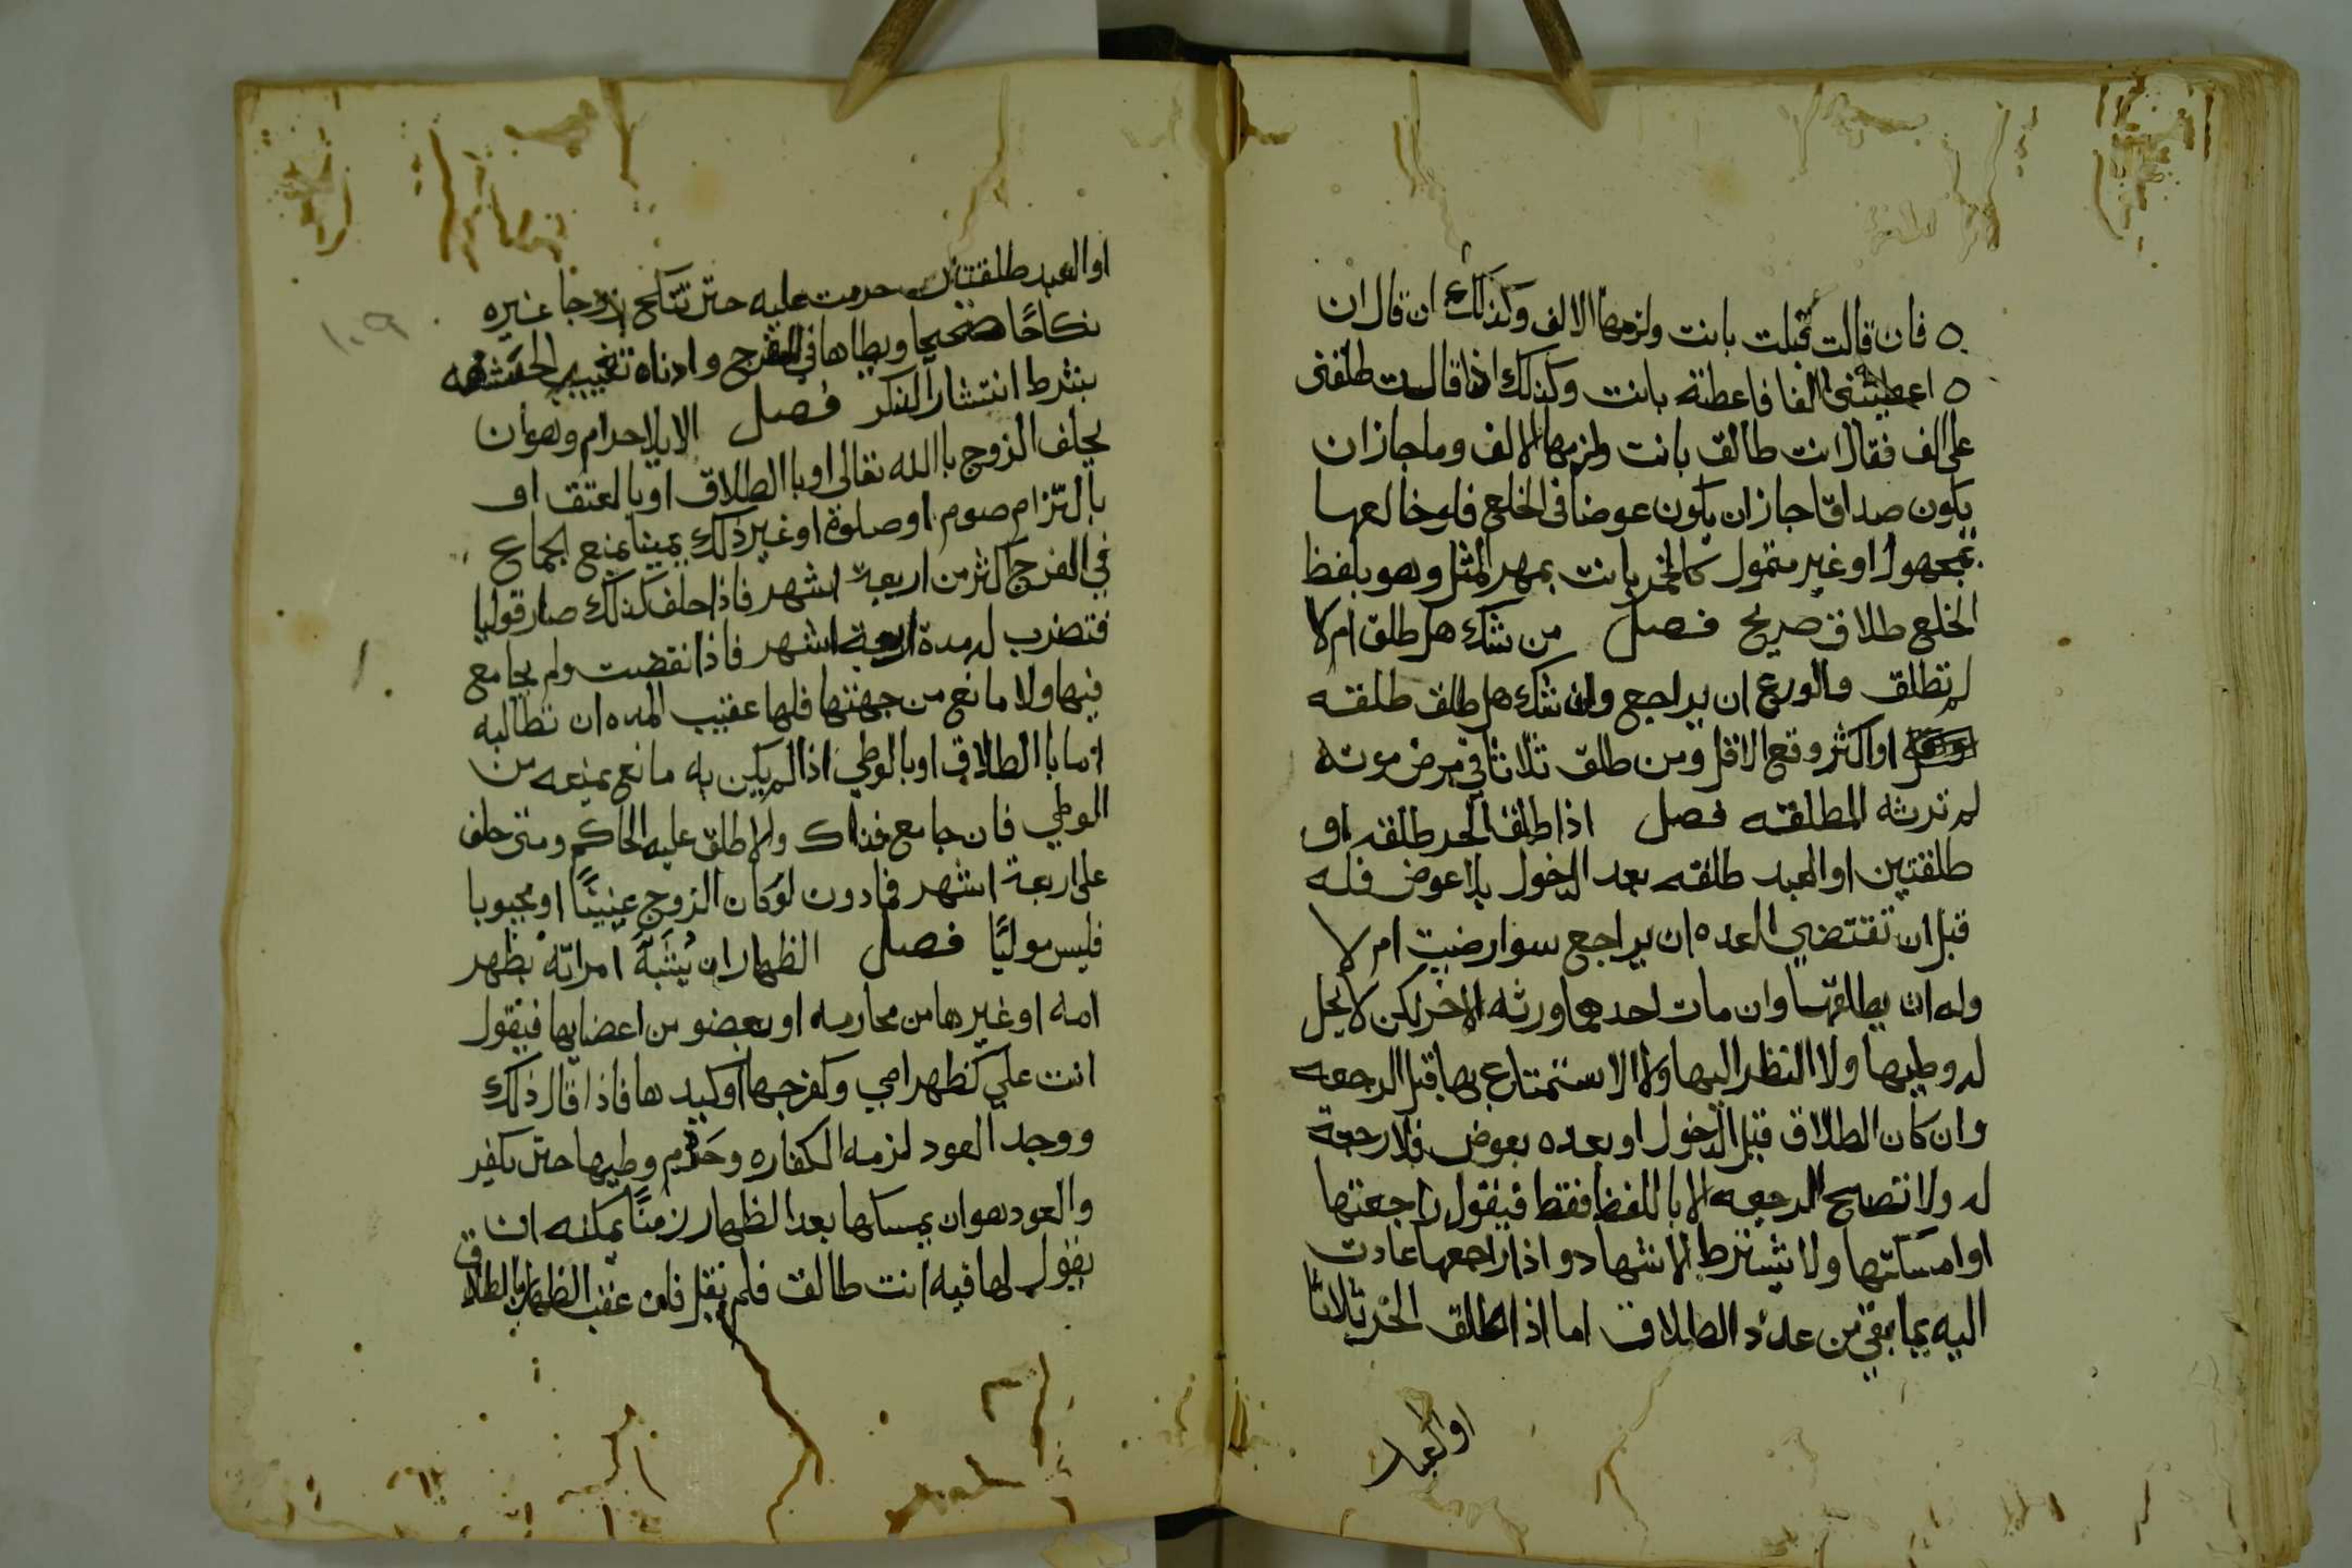 فان قالت قبلت بانت ولزمها الالف وكذلك ان قال ان
اعطيتني الفا فاعطته بانت وكذلك اذا قالت طلقني
على الف فقال انت طالق بانت ولزمها الالف وما جاز ان
يكون صداقا جاز ان يكون عوضا في الخلع فلو خالعها
بمجهول او غير متمول كالخمر بانت بمهر المثل وهو بلفظ
الخلع طلاق صريح فصل من شك هل طلق ام لا
لم تطلق والورع ان يراجع وان شك هل طلق طلقه
او اكثر وقع الاقل ومن طلق ثلاثا في مرض موته
لم ترثه المطلقه فصل اذا طلق الحر طلقه او
طلقتين او العبد طلقه بعد الدخول بلا عوض فله
قبل ان تنقضي العده ان يراجع سوا رضيت ام لا
وله ان يطلقها وان مات احدهما ورثه الاخر لكن لا يحل
له وطيها ولا النظر اليها ولا الاستمتاع بها قبل الرجعه
وان كان الطلاق قبل الدخول او بعده بعوض فلا رجعة
له ولا تصح الرجعه الا باللفظ فقط فيقول راجعتها
او امسكتها ولا يشترط الاشهاد واذا راجعها عادت
اليه بما بقي من عدد الطلاق اما اذا طلق الحر ثلاثا
او العبد
١٠٩
او العبد طلقتين حرمت عليه حتى تنكح زوجا غيره
نكاحًا صحيحا ويطاها في الفرج وادناه تغييب الحشفه
بشرط انتشار الذكر فصل الايلا حرام وهو ان
يحلف الزوج باالله تعالى او باالطلاق او بالعتق او
بالتزام صوم او صلوة او غير ذلك يمينا يمنع الجماع
في الفرج اكثر من اربعة اشهر فاذا حلف كذلك صار موليا
فتضرب له مدة اربعة اشهر فاذا نقضت ولم يجامع
فيها ولا مانع من جهتها فلها عقيب المده ان تطالبه
اما باالطلاق او بالوطي اذا لم يكن به مانع يمنعه من
الوطي فان جامع فذاك والا طلق عليه الحاكم ومتى حلف
على اربعة اشهر فما دون او كان الزوج عنينًا او مجبوبا
فليس موليًا فصل الظهار ان يُشَبِّهَ امراته بظهر
امه او غيرها من محارمه او بعضو من اعضايها فيقول
انت علي كظهر امي وكفرجها او كيدها فاذا قال ذلك
ووجد العود لزمه الكفاره وحَرُم وطيها حتى يكفر
والعود هو ان يمسكها بعد الظهار زمنًا يمكنه ان
يقول لها فيه انت طالق فلم يقل فان عقب الظهار بالطلاق